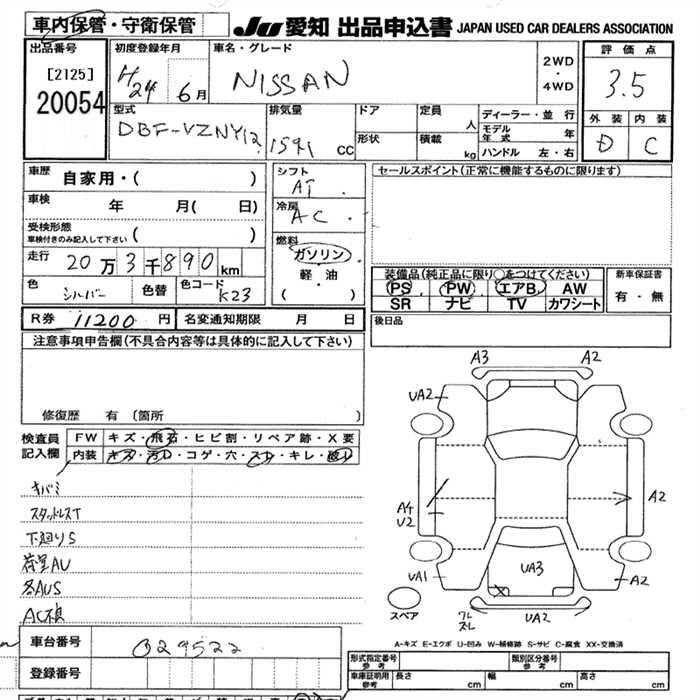 車内保管・守衛保管
JU 愛知 出品申込書 JAPAN USED CAR DEALERS ASSOCIATION
出品番号
[2125]
20054
初度登録年月
H24 6月
車名・グレード
NISSAN
2WD・4WD
評価点
3.5
外装 内装
D C
型式
DBF-VZNY12
排気量
1591 CC
ドア
形状
定員 人
積載 kg
ディーラー・並行
モデル年式 年
ハンドル 左・右
車歴 自家用・( )
車検 年 月( 日)
受検形態
車検付きのみ記入して下さい ( )
走行 20万3千890km
色 シルバー 色替 色コード K23
シフト
AT
冷房
AC
燃料
ガソリン
軽・油
( )
セールスポイント(正常に機能するものに限ります)
装備品(純正品に限り○をつけてください)
PS PW エアB AW
SR ナビ TV カワシート
新車保証書
有・無
R券 11200円 名変通知期限 月 日
後日品
注意事項申告欄(不具合内容等は具体的に記入して下さい)
修復歴 有 〔箇所 〕
検査員記入欄
FW キズ・飛石・ヒビ割・リペア跡・X要
内装 キズ・汚れ・コゲ・穴・スレ・キレ・破レ
キバミ
スタッドレスT
下廻りS
荷室AU
各AUS
AC不良
A3 A2
UA2
A4
U2
A2
UA1
UA3
A2
スペア
ワレ
スレ
UA2
A-キズ E-エクボ U-凹み W-補修跡 S-サビ C-腐食 XX-交換済
車台番号 029522
登録番号
形式指定番号 参考
類別区分番号 参考
車庫証明用 参考 長さ cm 幅 cm 高さ cm